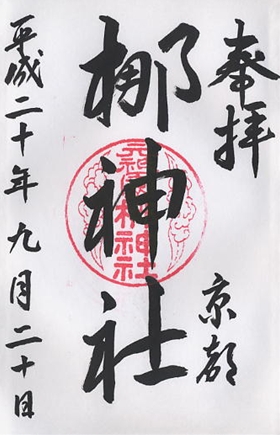 奉拝
京都
梛神社
平成二十年九月二十日